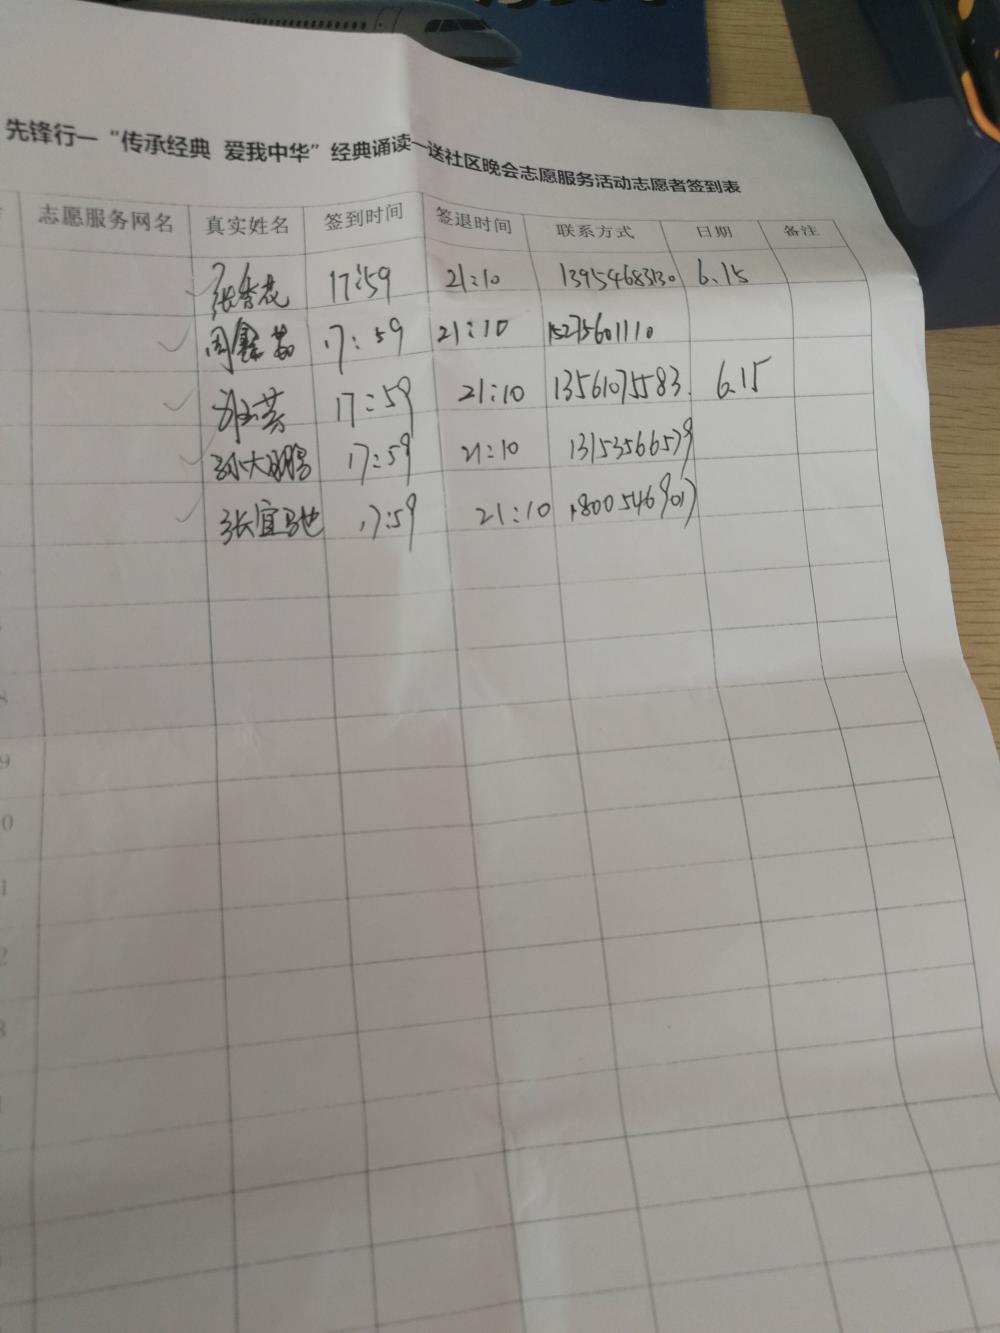 先锋行—“传承经典 爱我中华”经典诵读—送社区晚会志愿服务活动志愿者签到表
志愿服务网名 真实姓名 签到时间 签退时间 联系方式 日期 备注
张香花 17:59 21:10 13954683130 6.15
周鑫茹 17:59 21:10 15275601110
17:59 21:10 13561075583. 6.15
孙大鹏 17:59 21:10 13153566579
张宜驰 17:59 21:10 18005469017
9